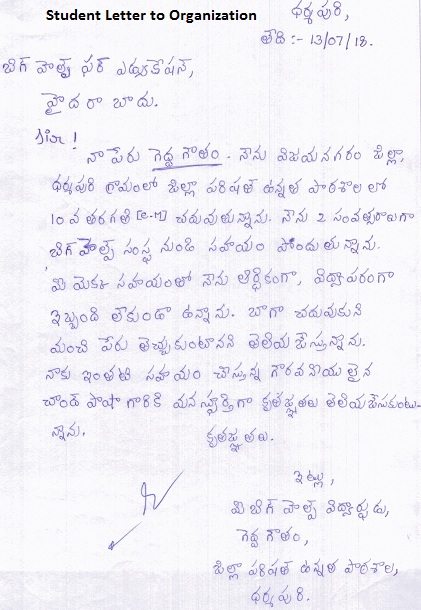 Student Letter to Organization
ధర్మపురి,
తేది :- 13/07/18.
బిగ్ హెల్ప్ ఫర్ ఎడ్యుకేషన్,
హైదరాబాదు.
Sir!
నా పేరు గెద్ద గౌతం. నేను విజయనగరం జిల్లా,
ధర్మపురి గ్రామంలో జిల్లా పరిషత్ ఉన్నత పాఠశాల లో
10 వ తరగతి [e.m] చదువుతున్నాను. నేను 2 సంవత్సరాలుగా
బిగ్ హెల్ప్ సంస్థ నుండి సహాయం పొందుతున్నాను.
మీ యొక్క సహాయంతో నేను ఆర్థికంగా, విద్యాపరంగా
ఇబ్బంది లేకుండా ఉన్నాను. బాగా చదువుకుని
మంచి పేరు తెచ్చుకుంటానని తెలియజేస్తున్నాను.
నాకు ఇంతటి సహాయం చేస్తున్న గౌరవనీయులైన
చాంద్ పాషా గారికి మనస్ఫూర్తిగా కృతజ్ఞతలు తెలియజేసుకుంటు-
న్నాను. కృతజ్ఞతలు.
ఇట్లు,
మీ బిగ్ హెల్ప్ విద్యార్థుడు,
గెద్ద గౌతం,
జిల్లా పరిషత్ ఉన్నత పాఠశాల,
ధర్మపురి.